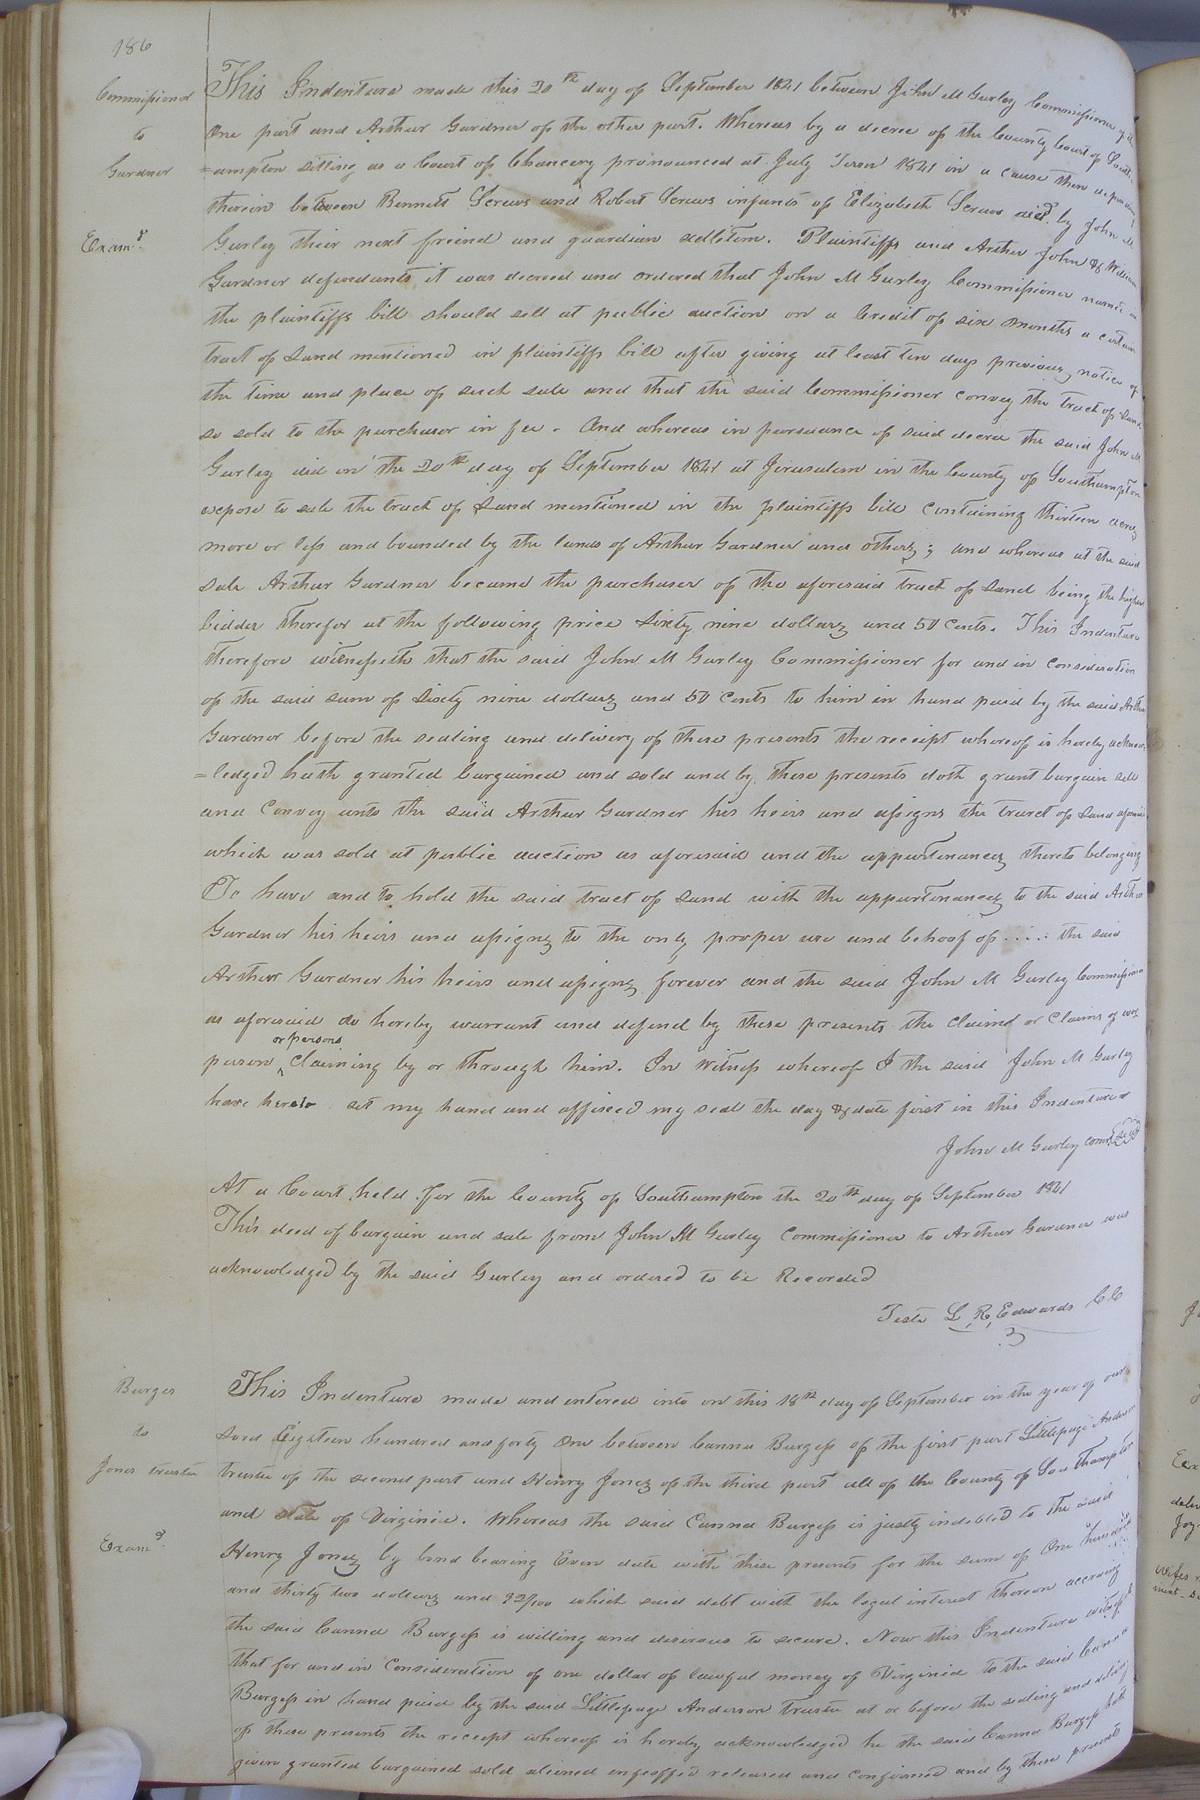 186
Commissioner
to
Gardner
Exam.d
This Indenture made this 20th day of September 1841 between John M Gurley Commissioner of the
one part and Arthur Gardner of the other part. Whereas by a decree of the County Court of South-
=ampton sitting as a Court of Chancery pronounced at July Term 1841 in a cause then depending
therein between Bennett Screws and Robert Screws infants of Elizabeth Screws decd. by John M
Gurley their next friend and guardian adletem. Plaintiffs and Arthur John & William
Gardner defendants it was decreed and ordered that John M Gurley Commissioner named in
the plaintiffs bill should sell at public auction on a Credit of six months a certain
tract of Land mentioned in plaintiffs bill after giving at least ten days previous notice of
the time and place of such sale and that the said Commissioner convey the tract of Land
so sold to the purchaser in fee. And whereas in pursuance of said decree the said John M
Gurley did on the 20th day of September 1841 at Jerusalem in the County of Southampton
expose to sale the tract of Land mentioned in the plaintiffs bill Containing thirteen acres
more or less and bounded by the lands of Arthur Gardner and others; and whereas at the said
sale Arthur Gardner became the purchaser of the aforesaid tract of Land being the highest
bidder therefor at the following price Sixty nine dollars and 50 Cents. This Indenture
therefore witnesseth that the said John M Gurley Commissioner for and in consideration
of the said sum of Sixty nine dollars and 50 Cents to him in hand paid by the said Arthur
Gardner before the sealing and delivery of these presents the receipt whereof is hereby acknow-
=ledged hath granted bargained and sold and by these presents doth grant bargain sell
and Convey unto the said Arthur Gardner his heirs and assigns the tract of Land aforesaid
which was sold at public auction as aforesaid and the appurtenances thereto belonging
To have and to hold the said tract of Land with the appurtenances to the said Arthur
Gardner his heirs and assigns to the only proper use and behoof of ..... the said
Arthur Gardner his heirs and assigns forever and the said John M Gurley Commissioner
as aforesaid do hereby warrant and defend by these presents the Claim or Claims of any
or persons
person ^ Claiming by or through him. In Witness whereof I the said John M Gurley
have hereto set my hand and affixed my seal the day & date first in this Indenture
John M Gurley Comr. Seal
At a Court held for the County of Southampton the 20th day of September 1841
This deed of bargain and sale from John M Gurley Commissioner to Arthur Gardner was
acknowledged by the said Gurley and ordered to be Recorded
Teste L. R. Edwards CC
Burges
to
Jones trustee
Exam.d
This Indenture made and entered into on this 18th day of September in the year of our
Lord Eighteen hundred and forty One between Canna Burgess of the first part Littlepage Anderson
trustee of the second part and Henry Jones of the third part all of the County of Southampton
and State of Virginia. Whereas the said Canna Burgess is justly indebted to the said
Henry Jones by bond bearing Even date with these presents for the sum of One hundred
and thirty two dollars and 32/100 which said debt with the legal interest thereon accruing
the said Canna Burgess is willing and desirous to secure. Now this Indenture witnesseth
that for and in Consideration of one dollar of lawful money of Virginia to the said Canna
Burgess in hand paid by the said Littlepage Anderson trustee at or before the sealing and delivery
of these presents the receipt whereof is hereby acknowledged he the said Canna Burgess hath
given granted bargained sold aliened enfeoffed released and confirmed and by these presents